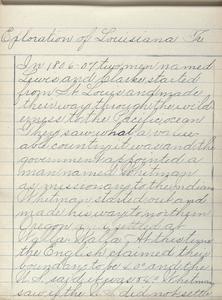 Exploration of Louisiana Tr
In 1806-07 two men named
Lewis and Clarke started
from St. Louis and made
their way through the wild
erness to the Pacific ocean
They saw what a value
able country it was and the
government appointed a
man named Whitman
as missionary to the Indians
Whitman started out and
made his way to northern
Oregon and settled at
Walla Walla. At this time
the English claimed their
boundary to be 42° and the
U.S. said it was 54° Whitman
saw if the U.S. did not settle